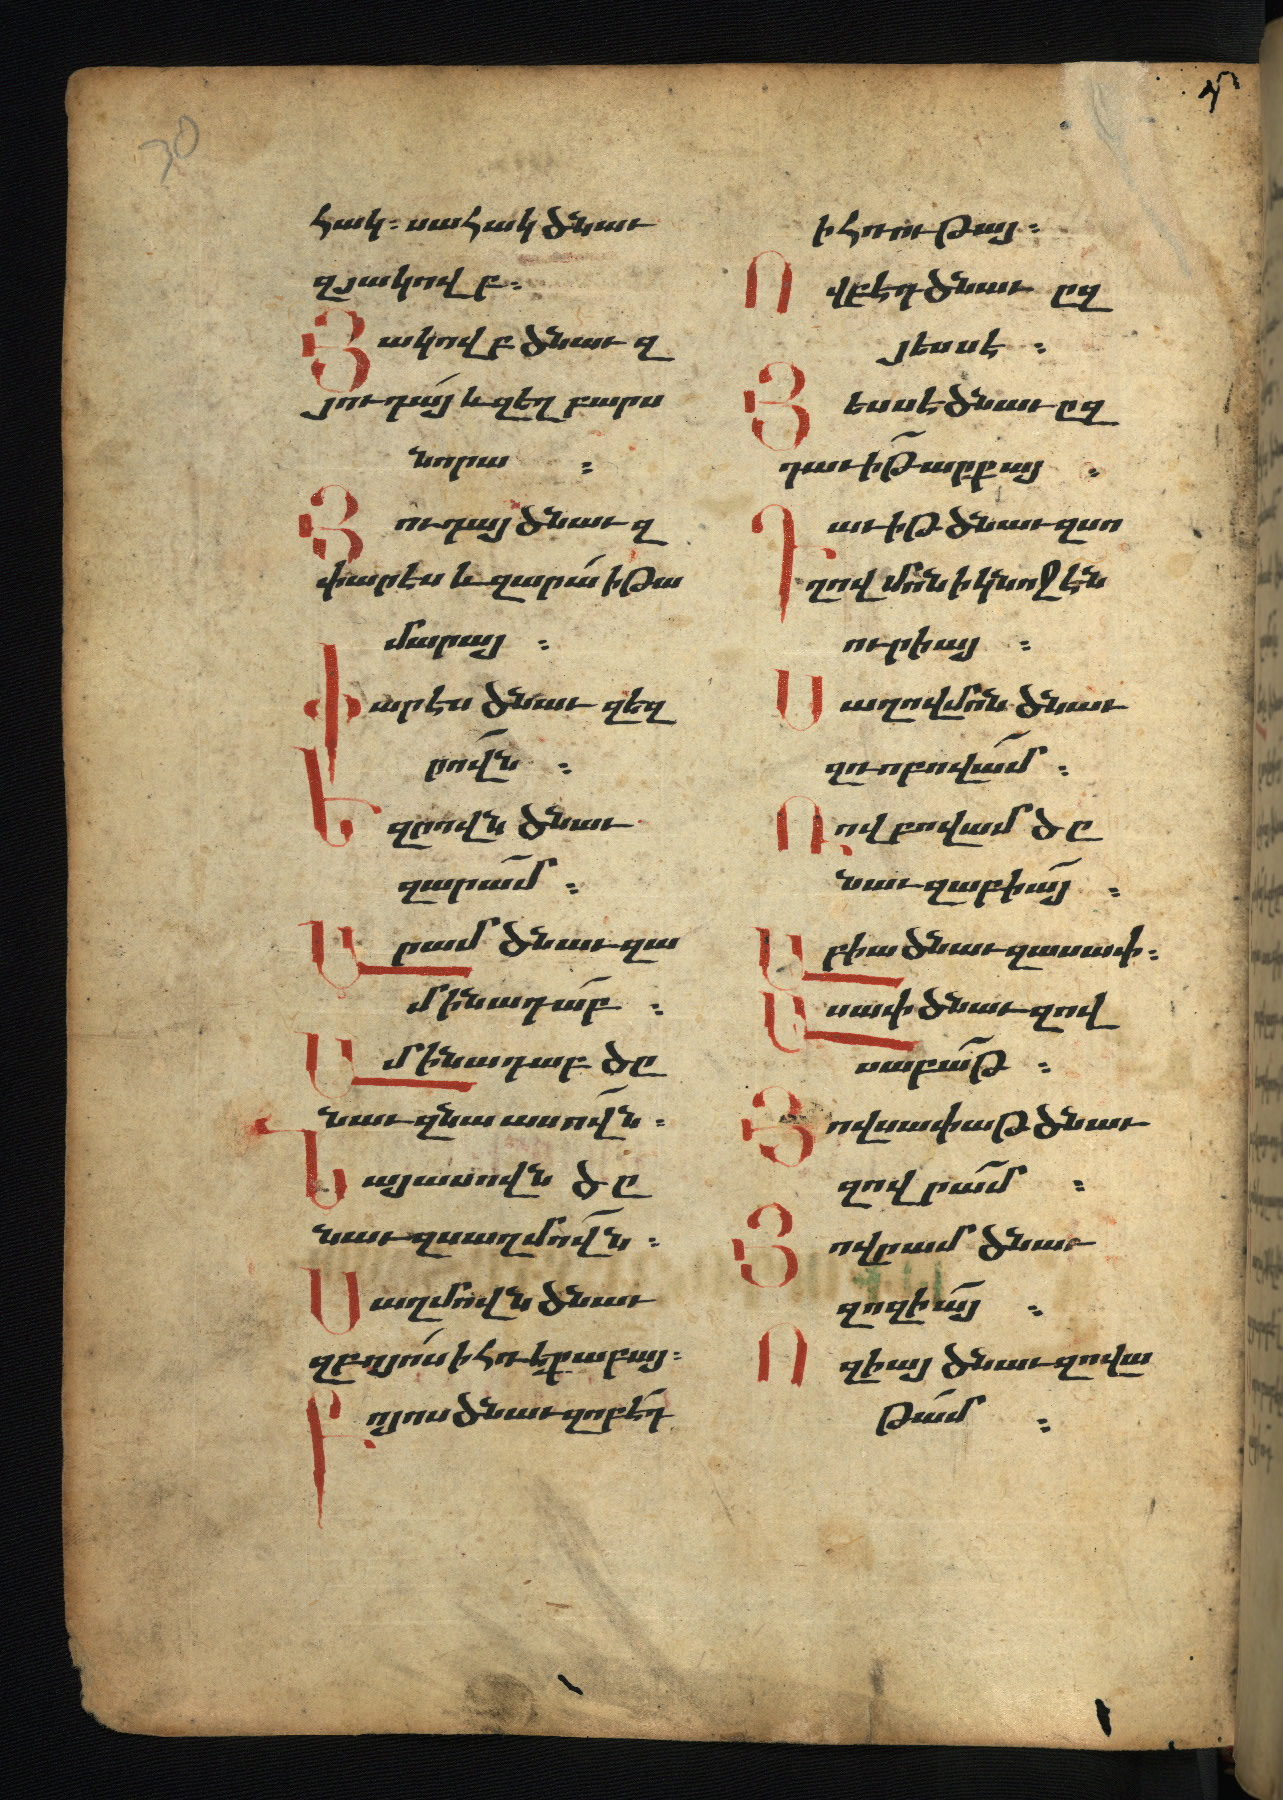 հակ։ սահակ ծնաւ
զյակովբ։
Յակովբ ծնաւ զ
յուդայ և զեղբարս
նորա ։
Յուդայ ծնաւ զ
փարէս և զարա ի թա
մարայ ։
Փարէս ծնաւ զեզ
րովն ։
Եզըովն ծնաւ
զարամ ։
Արամ ծնաւ զա
մինադաբ ։
Ամինադաբ ծը
նաւ զնաասովն ։
Նայասովն ծը
նաւ զսաղմովն ։
Սաղմովն ծնաւ
զբոյոս ի հռեքաբայ։
Բոյոս ծնաւ զոբէդ
ի հռութայ ։
Ովբէդ ծնաւ ըզ
յեսսէ ։
Յեսսէ ծնաւ ըզ
դաւիթ արքայ ։
Դաւիթ ծնաւ զսո
ղովմոն ի կնոջէն
ուրիայ ։
Սաղովմոն ծնաւ
զռոբովամ ։
Ռովբովամ ծը
նաւ զաբիայ ։
Աբիա ծնաւ զասափ։
Ասափ ծնաւ զով
սաբաթ ։
Յովսափաթ ծնաւ
զովրամ ։
Յովրամ ծնաւ
զոզիայ ։
Ոզիայ ծնաւ զովա
թամ ։
30